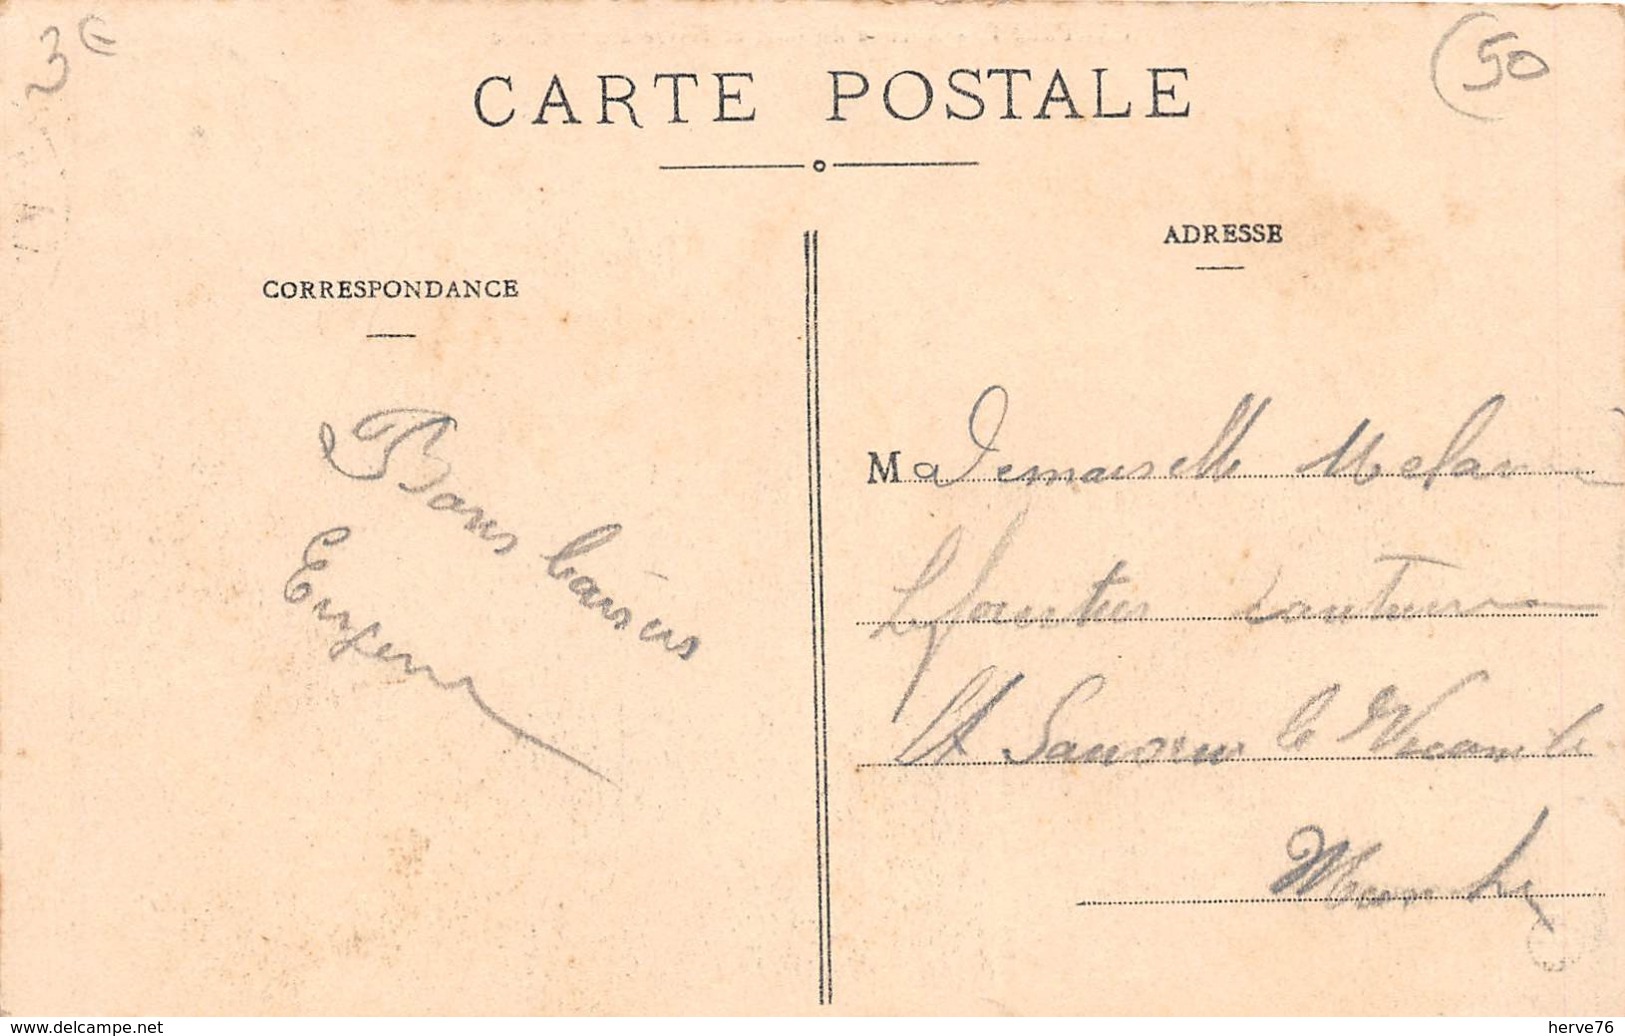 3€
50
CARTE POSTALE
CORRESPONDANCE
Bons baisers
Eugene
ADRESSE
Mademoiselle Melanie
couturiere
St Sauveur le Vicomte
Manche
www.delcampe.net
herve76